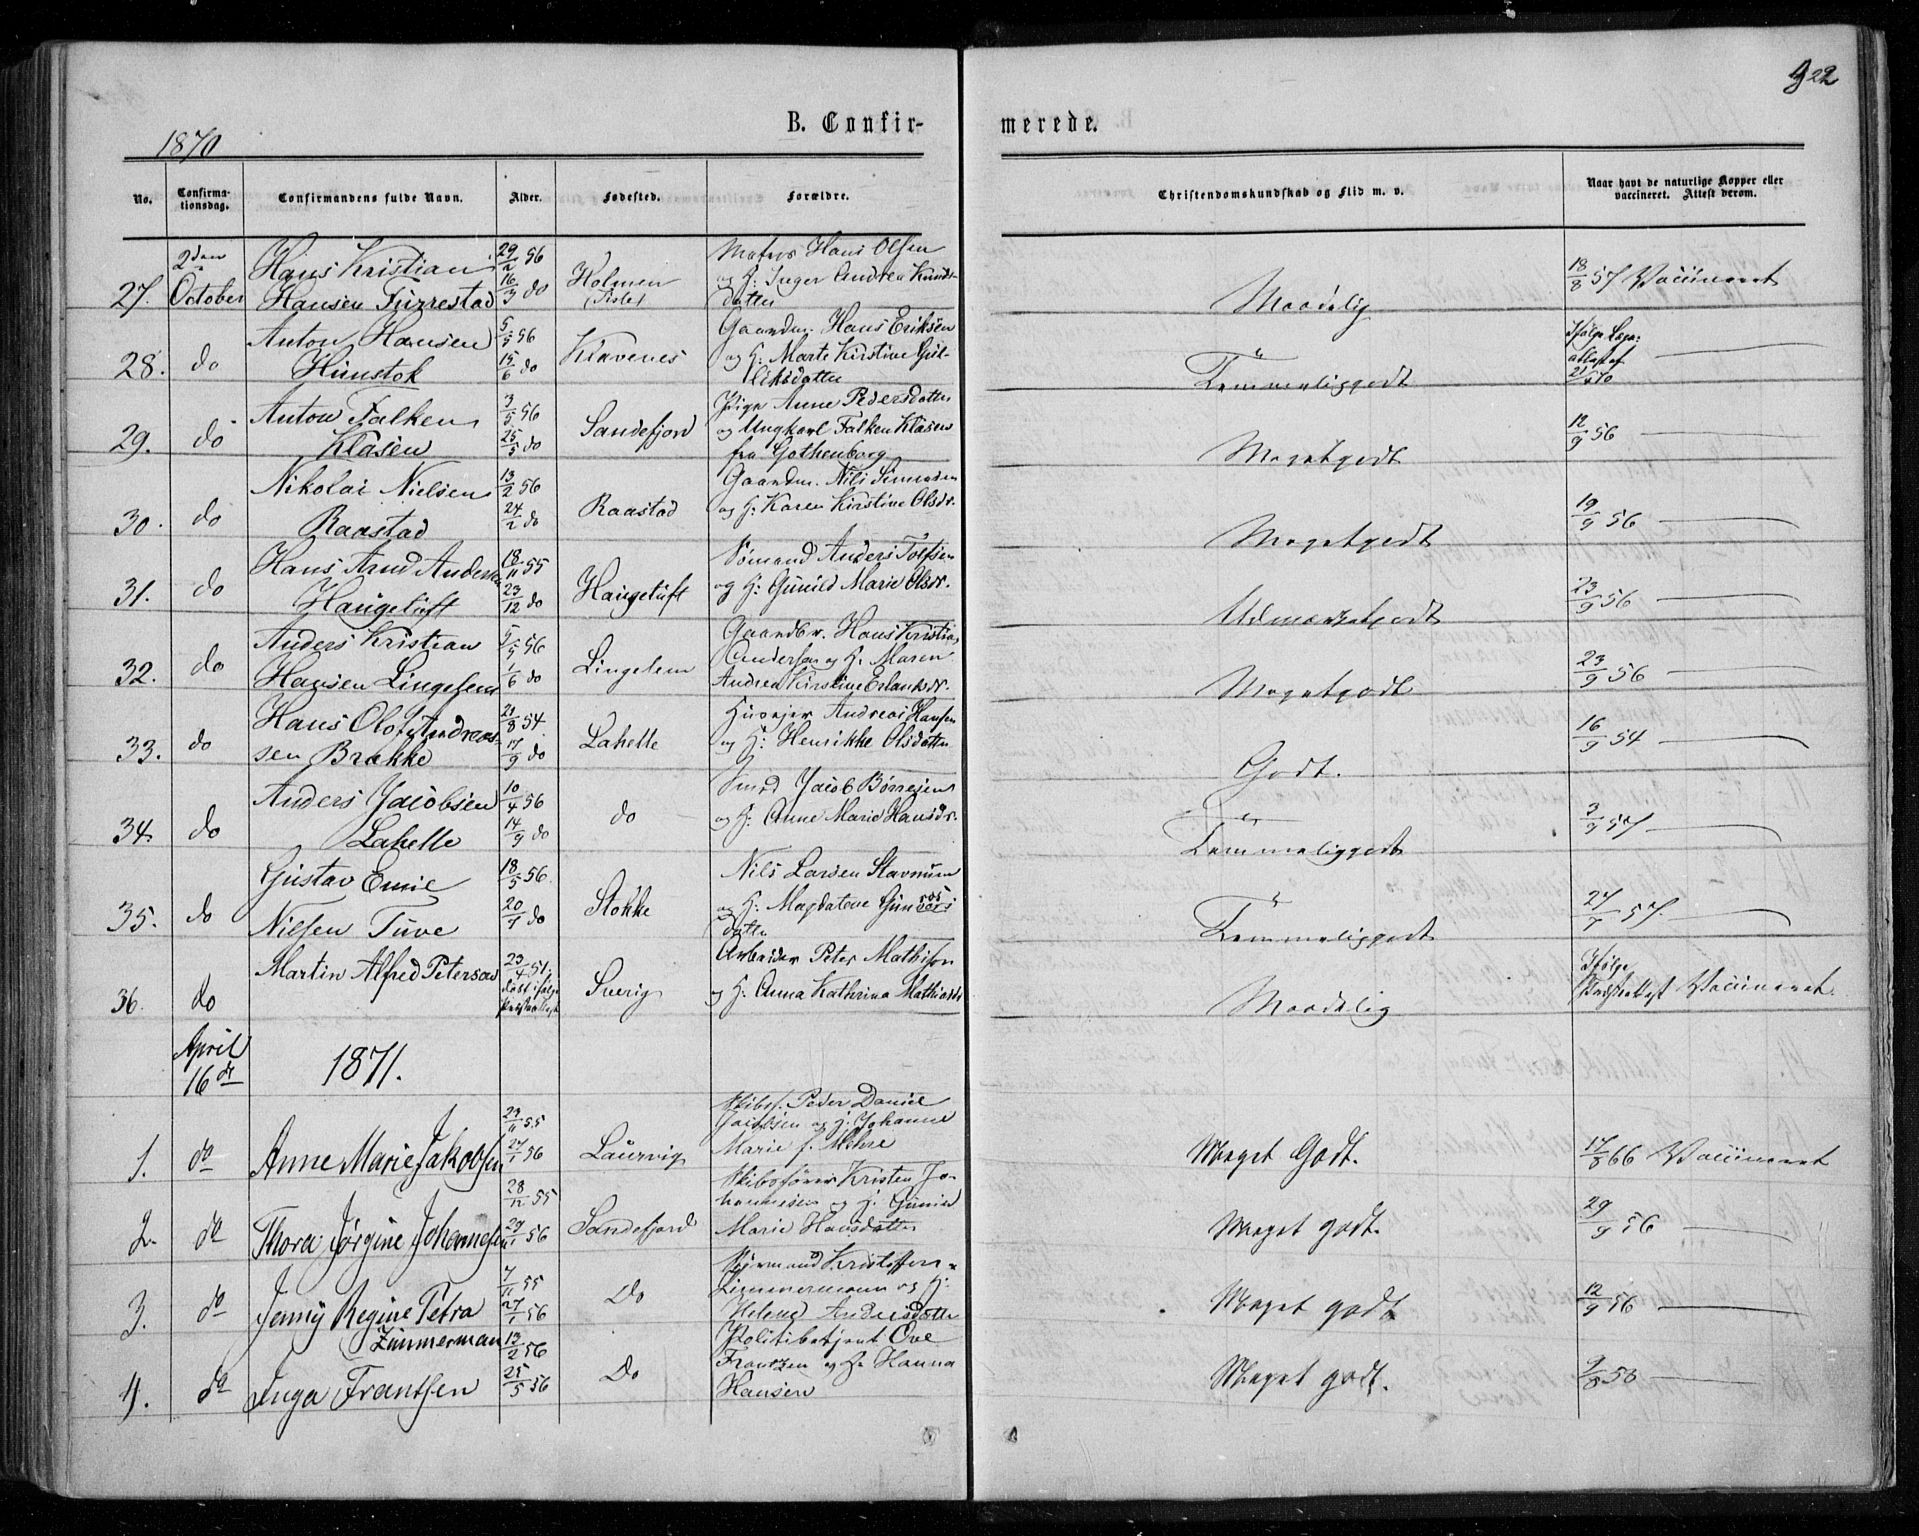 1870
B. Confir-
merede.
922
No.
Confirma-
tionsdag.
Confirmandens fulde Navn.
Alder.
Fødested.
Forældre.
Christendomskundskab og Flid m. v.
Naar havt de naturlige Kopper eller
vaccineret. Attest derom.
27. 2den October
Hans Kristian
Hansen Furrestad
29/2 56
16/3 do
Holmen
Matros Hans Olsen
og H: Inger Andrea Knuds-
datter
Maadelig
18/8 57 Vaccineret
28. do
Anton Hansen
Himstok
5/5 56
15/6 do
Klavenes
Gaardm. Hans Eriksen
og H: Marte Kirstine Gul-
liksdatter
Temmeliggodt
Ifølge Læge-
attest af
29. do
Anton Falken
Klasen
3/5 56
25/5 do
Sandefjord
Pige Anne Pedersdatter
og Ungkarl Falken Klasen
fra Gothenborg
Megetgodt
12/9 56
30. do
Nikolai Nielsen
Raastad
13/2 56
24/2 do
Raastad
Gaardm. Nils Simonsen
og H: Karen Kirstine Olsdr.
Megetgodt
19/9 56
31. do
Hans Arnd Andersen
Haugetuft
18/11 55
23/12 do
Haugetuft
Sømand Anders Tolfsen
og H: Gunild Marie Olsdr.
Udmærketgodt
23/9 56
32. do
Anders Kristian
Hansen Lingelem
5/5 56
1/6 do
Lingelem
Gaardbr. Hans Kristian
Andersen og H: Maren
Andrea Kirstine Erlandsdr.
Megetgodt
23/9 56
33. do
Hans Olof Andreas-
sen Brække
21/8 54.
17/9 do
Lahelle
Huseier Andreas Hansen
og H: Henrikke Olsdatter
Godt.
16/9 54
34. do
Anders Jacobsen
Lahelle
10/4 56
14/9 do
do
Smed Jacob Børresen
og H: Anne Marie Hansdr.
Temmeliggodt
3/9 57
35. do
Gustav Emil
Nielsen Tuve
18/5 56.
20/7 do
Stokke
Nils Larsen Stavnum
og H: Magdalene
datter
Temmeliggodt
27/7 57.
36. do
Martin Alfred Peterson
23/4 51.
døbt ifølge
Præsteattest
Sverig
Arbeider Peter Mathison
og H: Anna Kathrina Mathiasdr
Maadelig
Ifølge
Præsteattest Vaccineret
April
16de
1871.
1. do
Anne Marie Jakobsen
23/11 55
27/1 56
Laurvig
Skibsf. Peder Daniel
Jacobsen og H: Johanne
Marie f. Mehre
Meget Godt.
17/8 66 Vaccineret
2. do
Thora Jørgine Johannesen
28/12 55
29/1 56
Sandefjord
Skibsfører Kristen Jo-
hannesen og H: Gunild
Marie Hansdatter
Meget godt.
29/9 56
3. do
Jenny Regine Petra
Zimmerman
7/11 55
27/1 56
Do
Styrmand Kristoffer
Zimmermann og H:
Helene Andersdatter
Meget godt.
12/9 56
4. do
Inga Frantsen
13/2 56
25/5 56
Do
Politibetjent Ove
Frantzen og H: Hanna
Hansen
Meget godt.
9/8 58